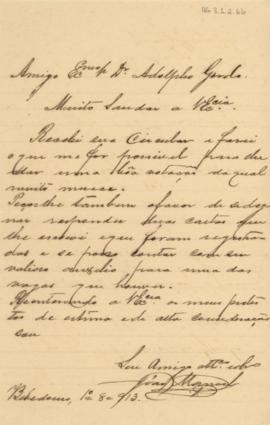 AG 3.1.2.66
Amigo Exmo Dr. Adolpho Gordo
Muito Saudar a VExcia.
Recebi sua Circular e farei
o que me for possivel para lhe
dar uma bôa votação da qual
muito merece.
Peço-lhe tambem o favor de se dignar
nar responder duas cartas que
lhe escrevi e que foram registra
das e se posso contar com seu
valioso auxilio para uma das
vagas que houver.
a VExcia os meus protes
tos de estima e de alta consideração
sou
Seu Amigo atto. obro
João
Bebedouro, 1º 8 913.